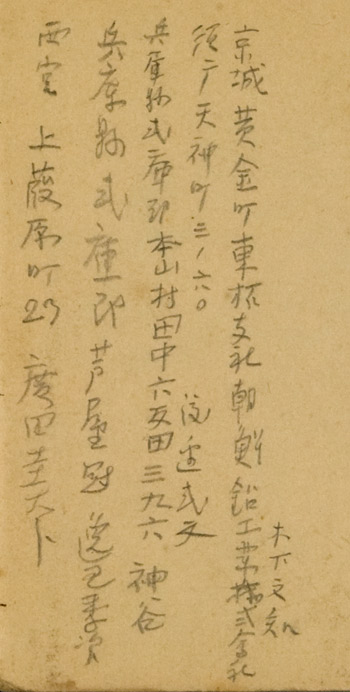 京城黄金町東拓支社朝鮮鉛工業株式会社
木下文
須戸天神町三ノ六〇
渡辺武文
兵庫縣武庫郡本山村田中六反田三九六 神谷
兵庫縣武庫郡芦屋
西宮 上葭原町23 廣田